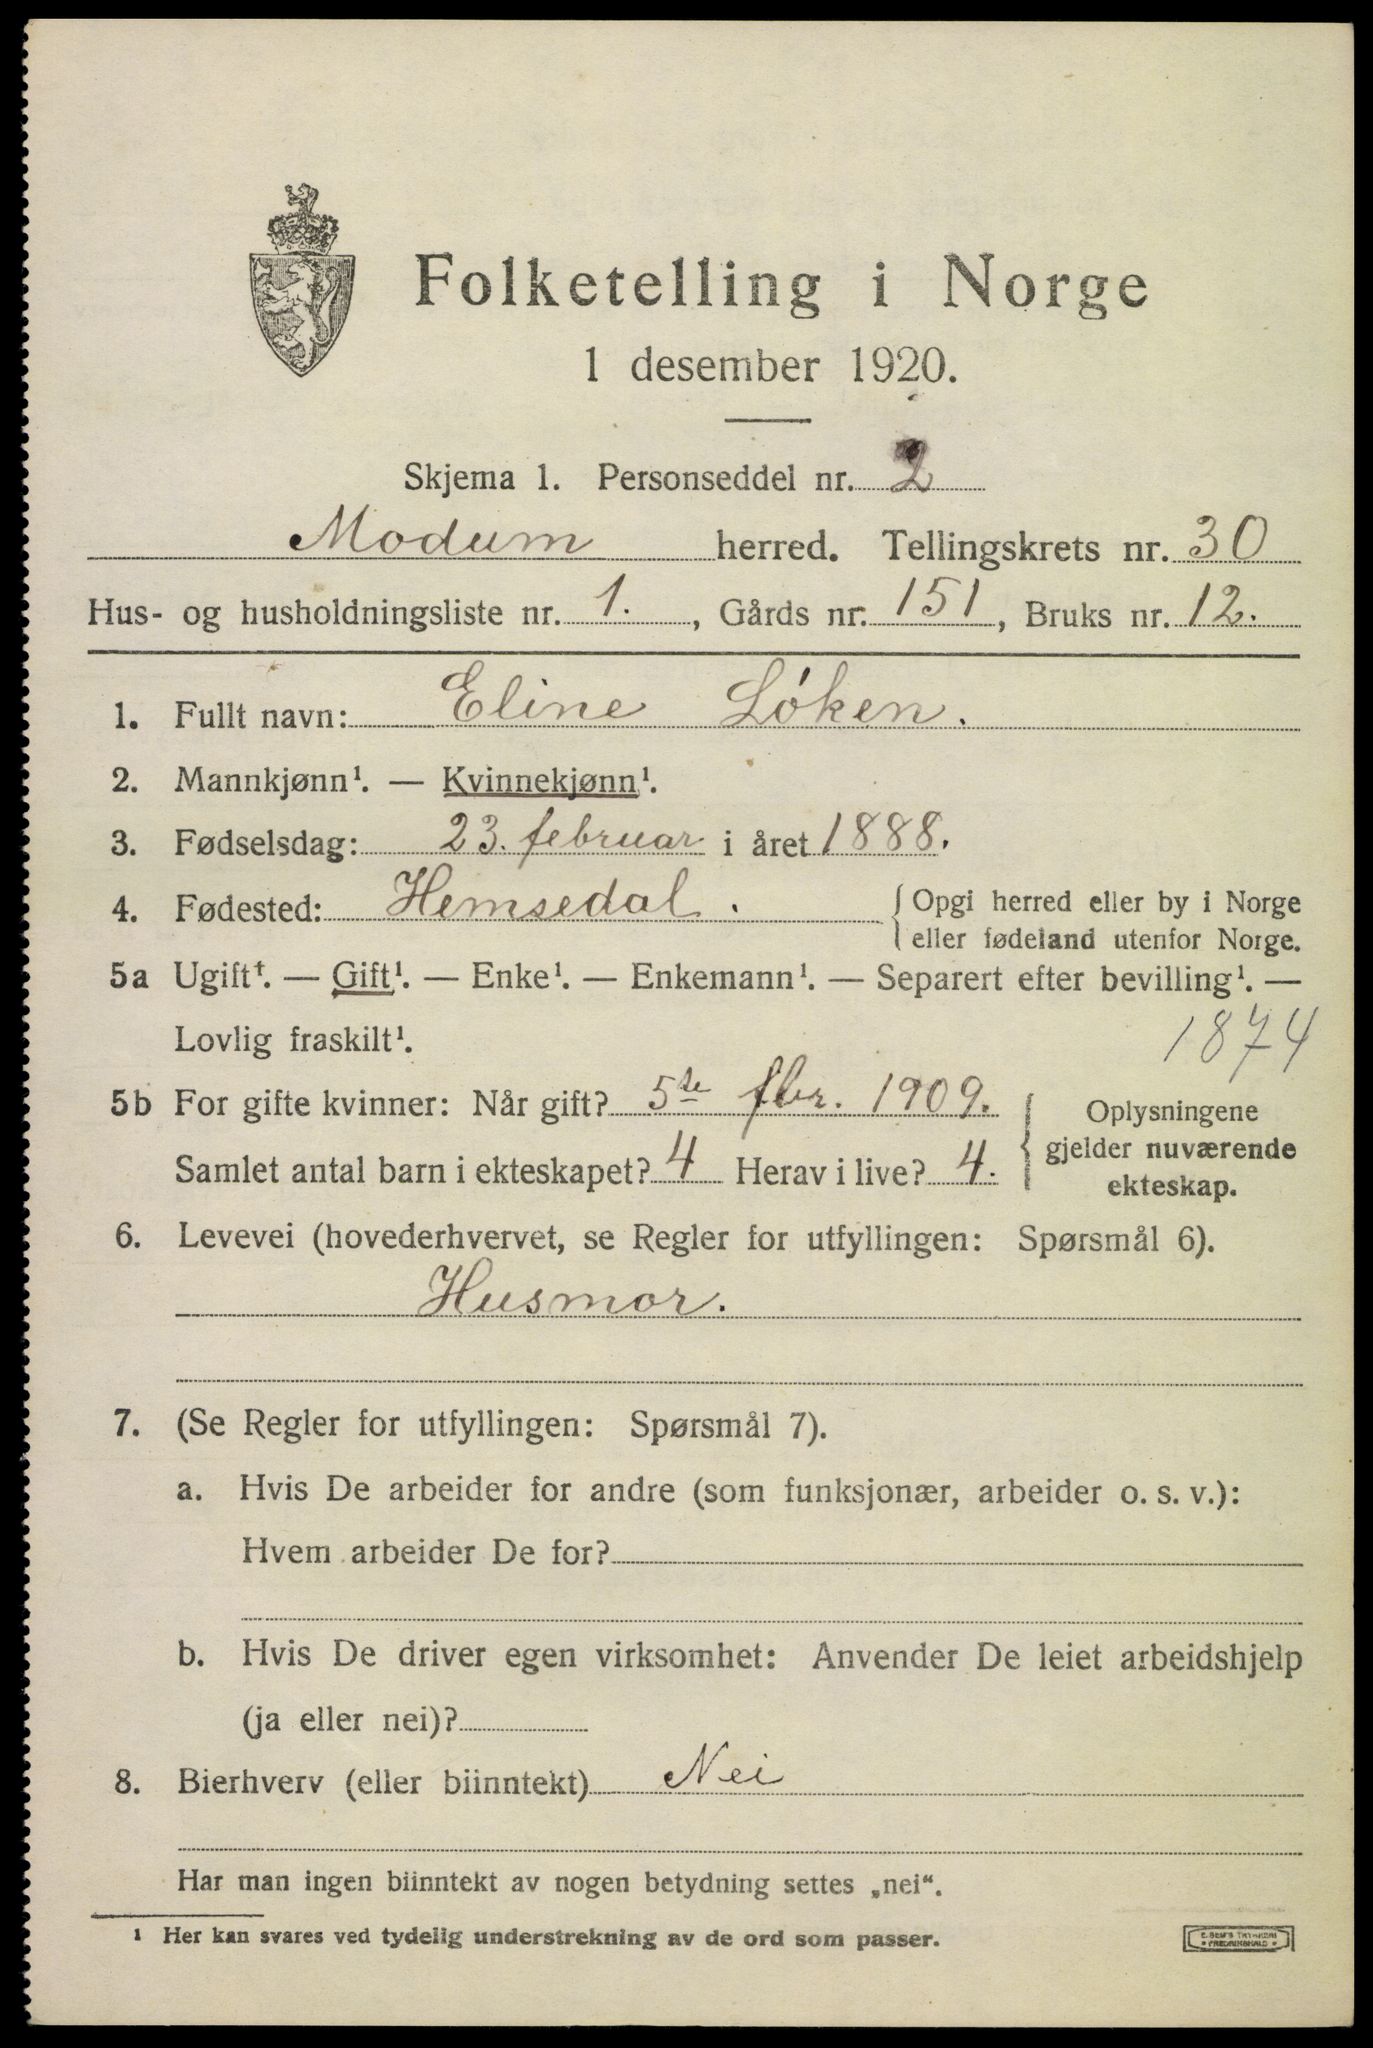 Folketelling i Norge
1 desember 1920.
Skjema 1. Personseddel nr. 2
Modum herred. Tellingskrets nr. 30
Hus- og husholdningsliste nr. 1. , Gårds nr. 151, Bruks nr. 12.
1. Fullt navn: Eline Løken.
2. Mannkjønn¹. — Kvinnekjønn¹.
3. Fødselsdag: 23. februar i året 1888.
4. Fødested: Hemsedal. { Opgi herred eller by i Norge
eller fødeland utenfor Norge.
5a Ugift¹. — Gift¹. — Enke¹. — Enkemann¹. — Separert efter bevilling¹. —
Lovlig fraskilt¹.
1874
5b For gifte kvinner: Når gift? 5te fbr. 1909.
Samlet antal barn i ekteskapet? 4 Herav i live? 4.
{ Oplysningene
gjelder nuværende
ekteskap.
6. Levevei (hovederhvervet, se Regler for utfyllingen: Spørsmål 6).
Husmor.
7. (Se Regler for utfyllingen: Spørsmål 7).
a. Hvis De arbeider for andre (som funksjonær, arbeider o. s. v.):
Hvem arbeider De for?
b. Hvis De driver egen virksomhet: Anvender De leiet arbeidshjelp
(ja eller nei)?
8. Bierhverv (eller biinntekt) Nei
Har man ingen biinntekt av nogen betydning settes „nei“.
¹ Her kan svares ved tydelig understrekning av de ord som passer.
E. SEM'S TRYKKERI
• FREDRIKSHALD •